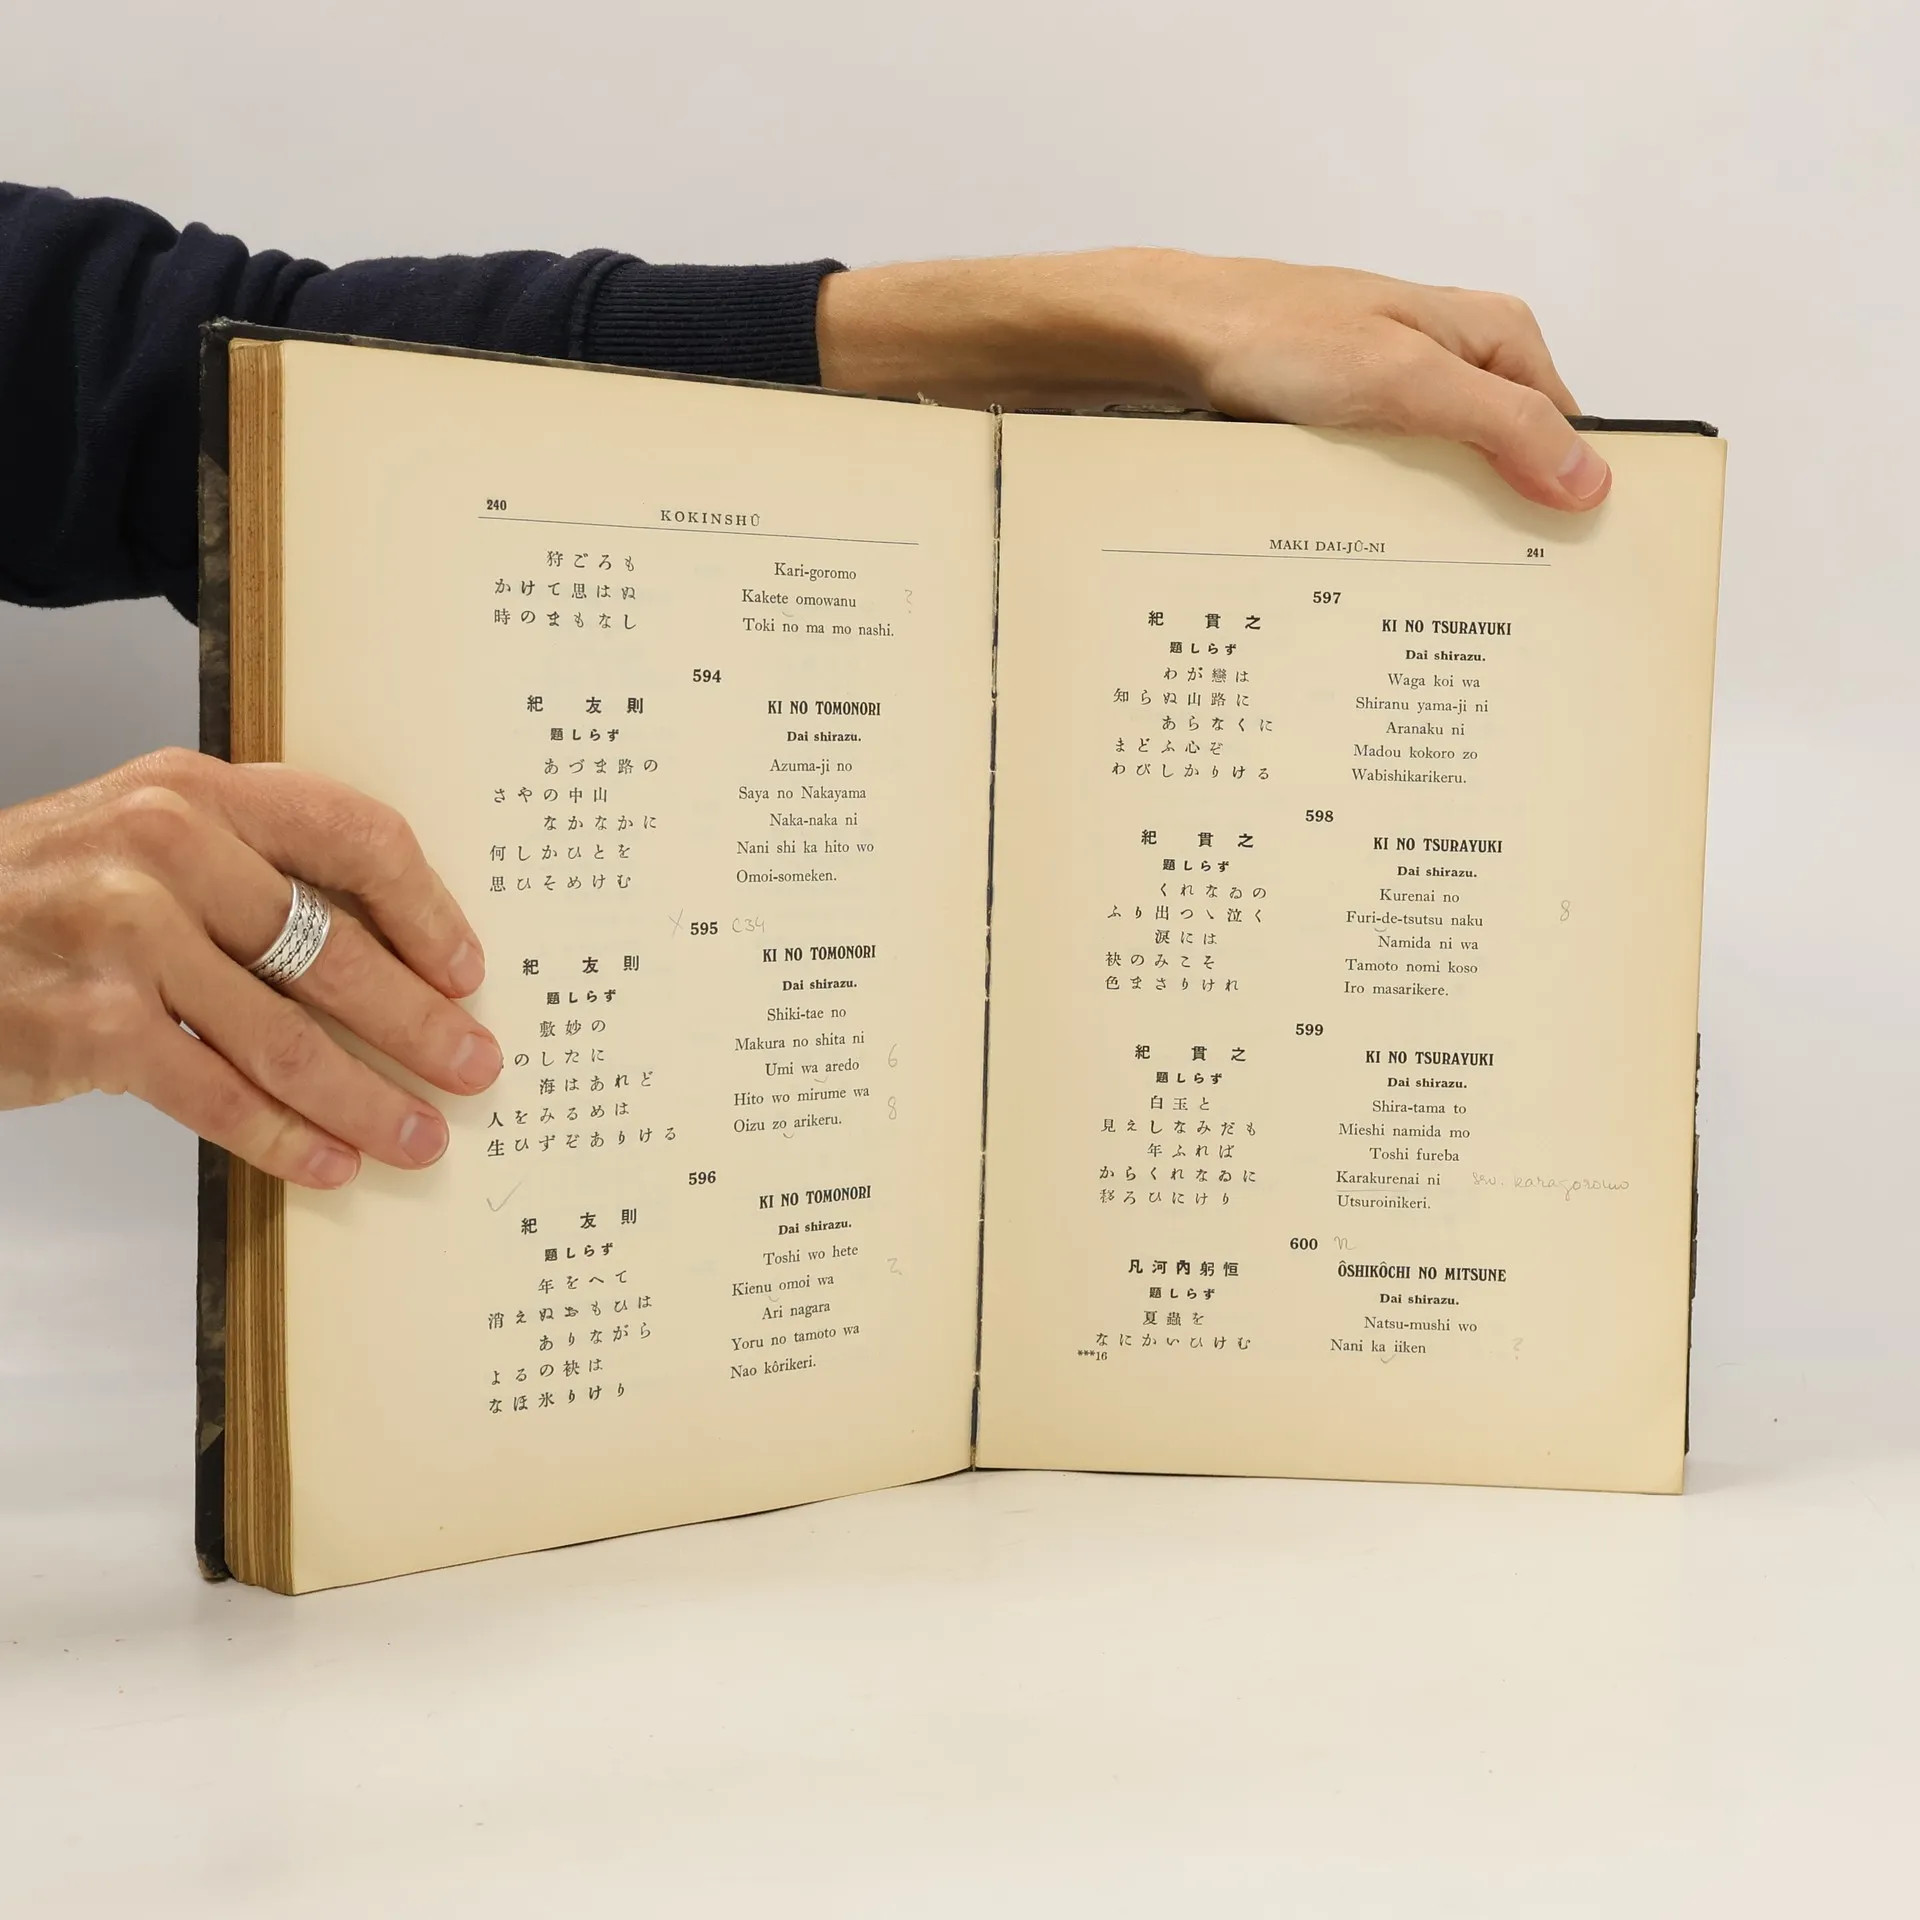 240 KOKINSHÛ
狩ごろも Kari-goromo
かけて思はぬ Kakete omowanu ?
時のまもなし Toki no ma mo nashi.
594
紀友則 KI NO TOMONORI
題しらず Dai shirazu.
あづま路の Azuma-ji no
さやの中山 Saya no Nakayama
なかなかに Naka-naka ni
何しかひとを Nani shi ka hito wo
思ひそめけむ Omoi-someken.
X 595 C34
紀友則 KI NO TOMONORI
題しらず Dai shirazu.
敷妙の Shiki-tae no
のしたに Makura no shita ni
海はあれど Umi wa aredo 6
人をみるめは Hito wo mirume wa
生ひずぞありける Oizu zo arikeru. 8
596
紀友則 KI NO TOMONORI
題しらず Dai shirazu.
年をへて Toshi wo hete
消えぬおもひは Kienu omoi wa 2
ありながら Ari nagara
よるの袂は Yoru no tamoto wa
なほ氷りけり Nao kôrikeri.
MAKI DAI-JÛ-NI 241
597
紀貫之 KI NO TSURAYUKI
題しらず Dai shirazu.
わが戀は Waga koi wa
知らぬ山路に Shiranu yama-ji ni
あらなくに Aranaku ni
まどふ心ぞ Madou kokoro zo
わびしかりける Wabishikarikeru.
598
紀貫之 KI NO TSURAYUKI
題しらず Dai shirazu.
くれなゐの Kurenai no
ふり出つゝ泣く Furi-de-tsutsu naku 8
涙には Namida ni wa
袂のみこそ Tamoto nomi koso
色まさりけれ Iro masarikere.
599
紀貫之 KI NO TSURAYUKI
題しらず Dai shirazu.
白玉と Shira-tama to
見えしなみだも Mieshi namida mo
年ふれば Toshi fureba
からくれなゐに Karakurenai ni karagoromo
移ろひにけり Utsuroinikeri.
600 n
凡河內躬恒 ÔSHIKÔCHI NO MITSUNE
題しらず Dai shirazu.
夏蟲を Natsu-mushi wo
なにかいひけむ Nani ka iiken ?
***16